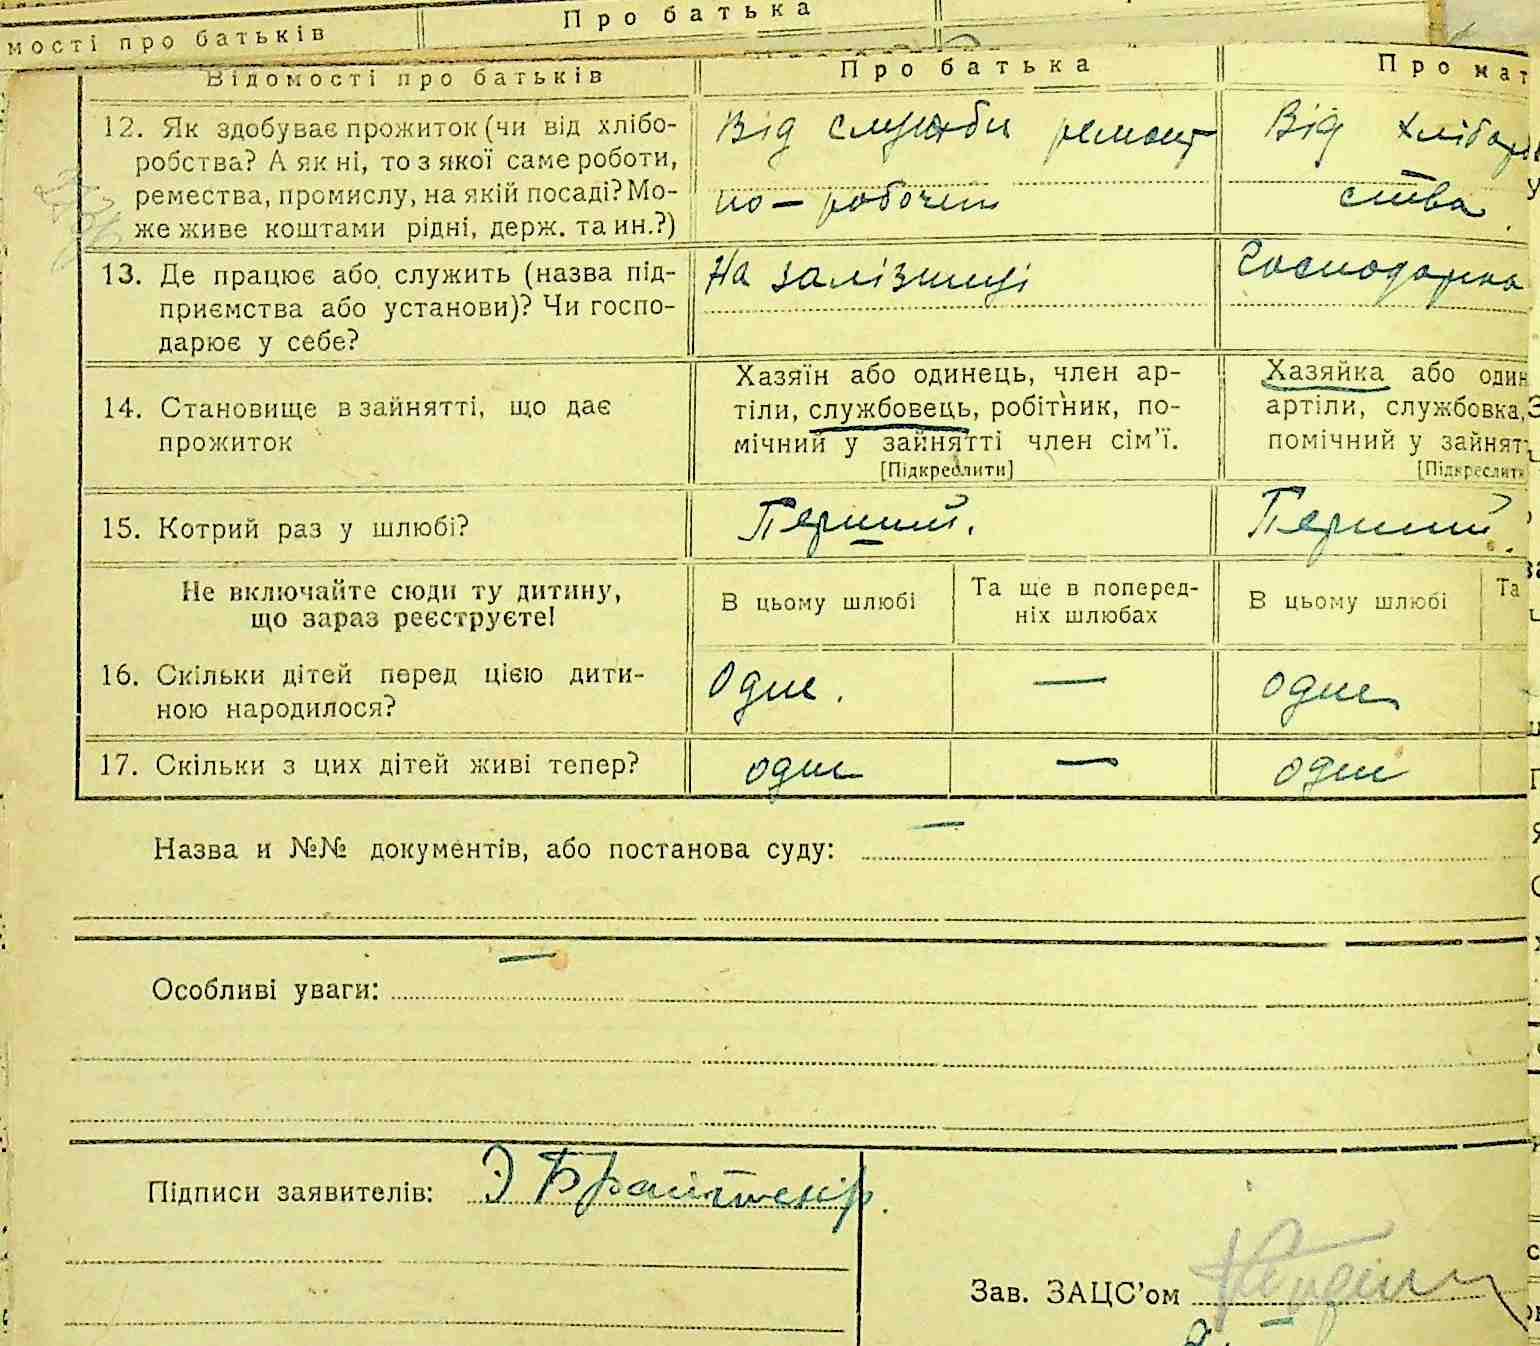 мості про батьків Про батька
Відомості про батьків Про батька Про мат
12. Як здобуває прожиток (чи від хлібо- Від служби ремонт Від хлібороб
робства? А як ні, то з якої саме роботи,
ремества, промислу, на якій посаді? Мо- но-робочим ства
же живе коштами рідні, держ. та ин.?)
13. Де працює або служить (назва під- На залізниці Господарка
приємства або установи)? Чи госпо-
дарює у себе?
Хазяїн або одинець, член ар- Хазяйка або один
14. Становище в зайнятті, що дає тіли, службовець, робітник, по- артіли, службовка,
прожиток мічний у зайнятті член сім'ї. помічний у зайнят
[Підкреслити] [Підкреслити
15. Котрий раз у шлюбі? Перший. Перший.
Не включайте сюди ту дитину, В цьому шлюбі Та ще в поперед- В цьому шлюбі Та
що зараз реєструєте! ніх шлюбах
16. Скільки дітей перед цією дити- Одне. — одне
ною народилося?
17. Скільки з цих дітей живі тепер? одне — одне
Назва и №№ документів, або постанова суду: —
Особливі уваги: —
Підписи заявителів:
Зав. ЗАЦС'ом